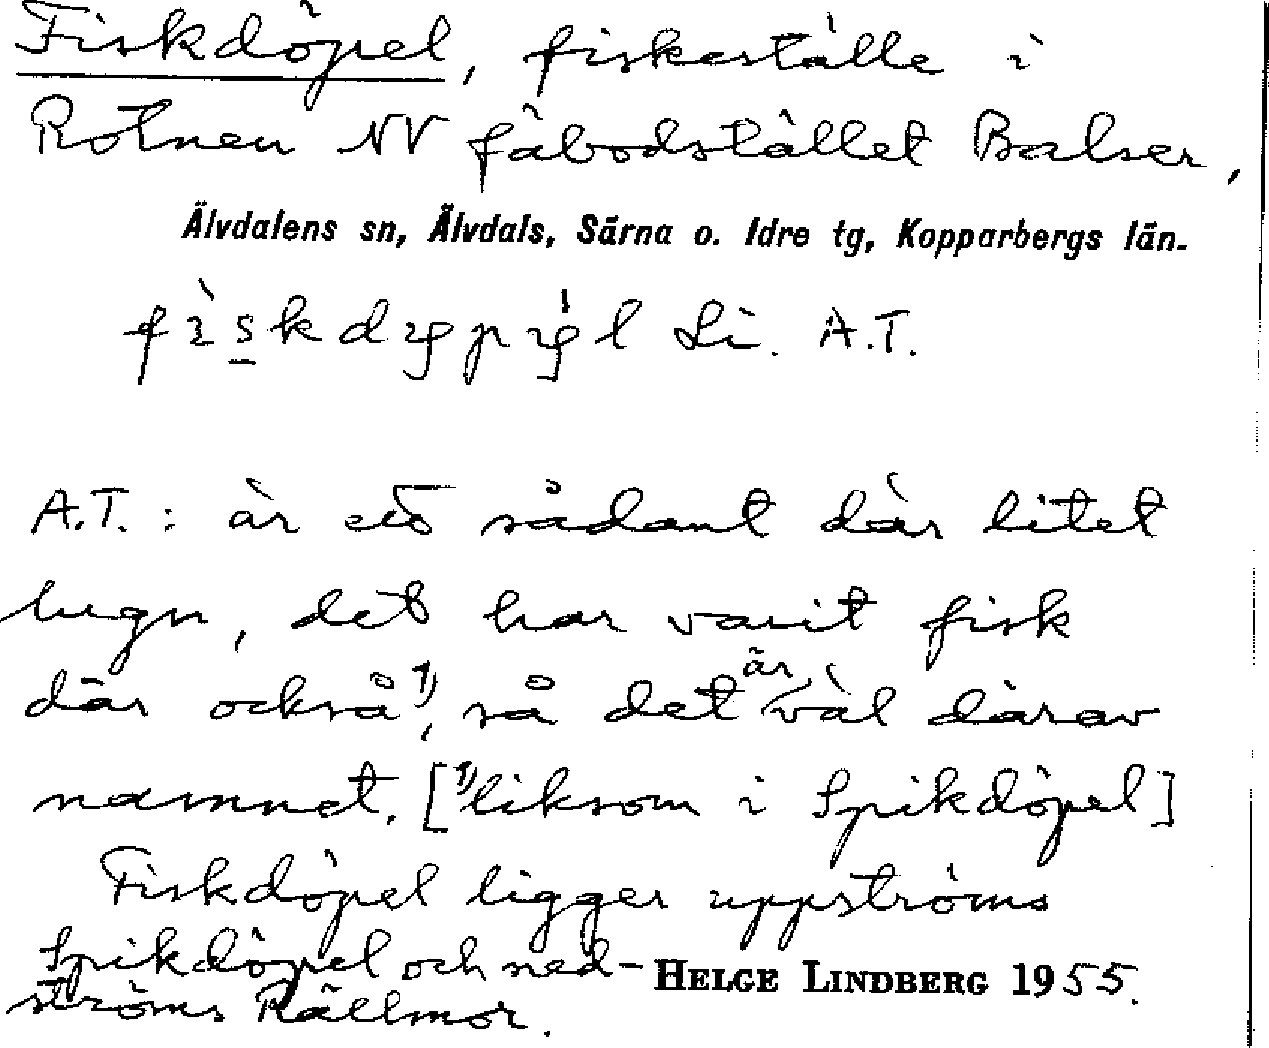 Fiskdöpel, fiskeställe i
Rotnen NV fäbodstället Balser,
Älvdalens sn, Älvdals, Särna o. Idre tg, Kopparbergs län.
Li. A.T.
A.T.: är ett sådant där litet
lugn, det har varit fisk
där också¹⁾, så det är väl därav
namnet. [¹⁾liksom i Spikdöpel]
Fiskdöpel ligger uppströms
Spikdöpel och ned-
ströms Rällmor.
HELGE LINDBERG 1955.